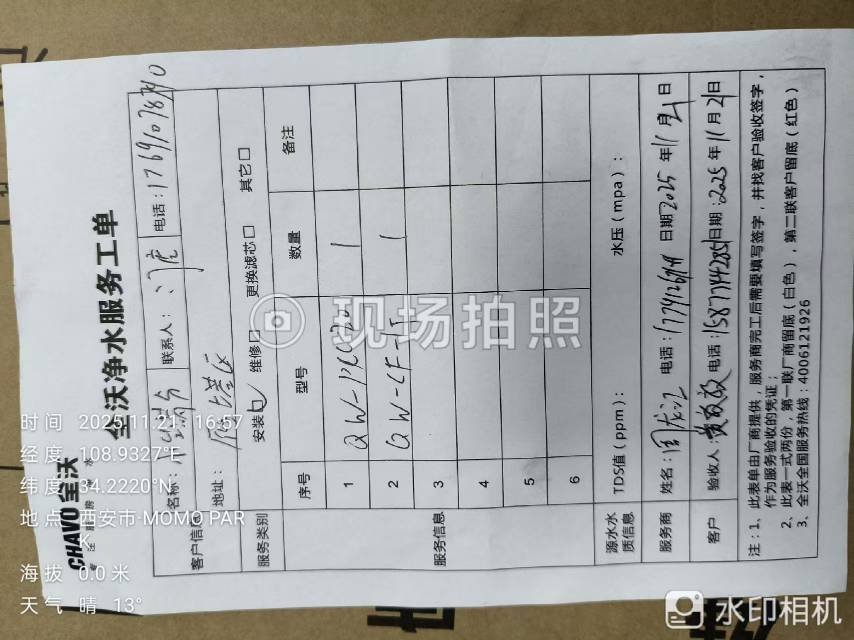 CHAVO全沃
全沃净水服务工单
客户信息
名称：
联系人：
电话：
地址：雁塔区
服务类别
安装
维修
更换滤芯
其它
服务信息
序号 型号 数量 备注
1 1
2 1
3
4
5
6
源水水质信息
TDS值（ppm）：
水压（mpa）：
服务商 姓名： 电话： 日期2025年11月21日
客户 验收人： 电话：15877442851 日期：2025年11月21日
注：1、此表单由厂商提供，服务商完工后需要填写签字，并找客户验收签字，
作为服务验收的凭证；
2、此表一式两份，第一联厂商留底（白色），第二联客户留底（红色）
3、全沃全国服务热线：4006121926
现场拍照
时间 2025.11.21 16:57
经度 108.9327°E
纬度 34.2220°N
地点 西安市·MOMO PAR
K
海拔 0.0米
天气 晴 13°
水印相机